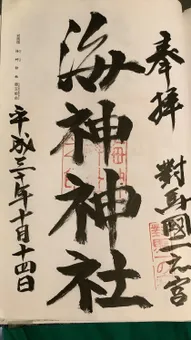 奉拝
對馬國一之宮
海神神社
平成三十年十月十四日